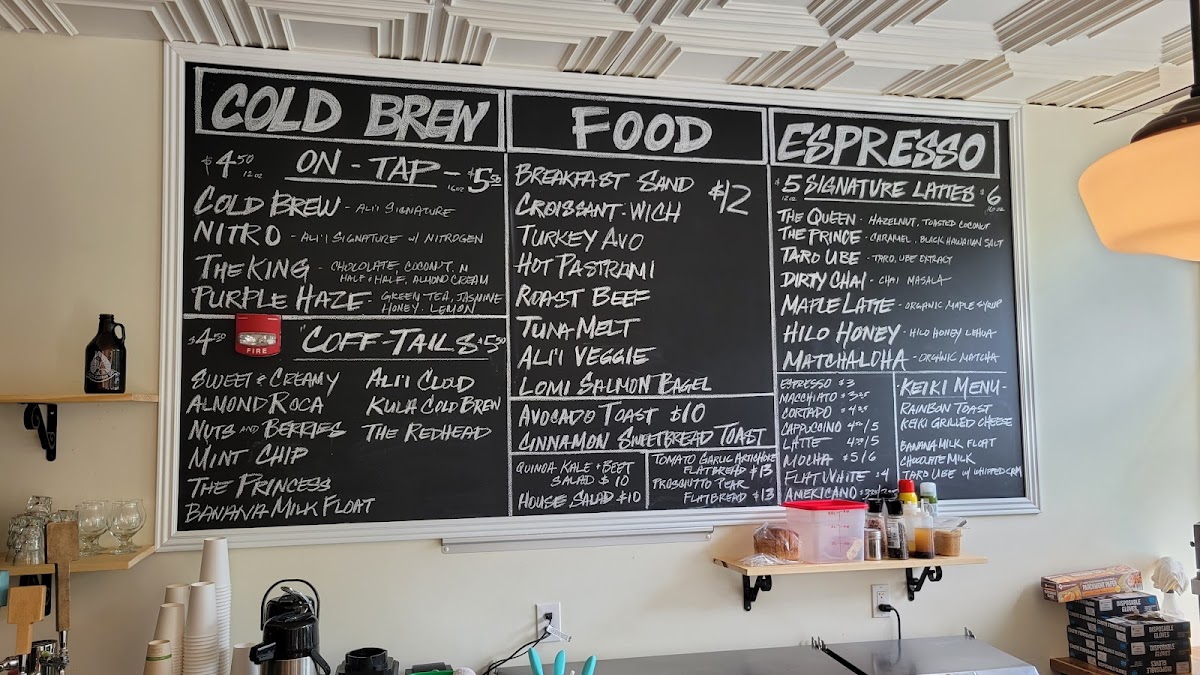 COLD BREW
$4.50 12 oz ON-TAP - 16 oz $5.50
COLD BREW - ALI'I SIGNATURE
NITRO - ALI'I SIGNATURE W/ NITROGEN
THE KING - CHOCOLATE, COCONUT, N
HALF & HALF, ALMOND CREAM
PURPLE HAZE - GREEN TEA, JASMINE
HONEY, LEMON
$4.50 "COFF-TAILS $5.50
FIRE
SWEET & CREAMY
ALMOND ROCA
NUTS AND BERRIES
MINT CHIP
THE PRINCESS
BANANA MILK FLOAT
ALI'I CLOUD
KULA COLD BREW
THE REDHEAD
FOOD
BREAKFAST SAND $12
CROISSANT-WICH
TURKEY AVO
HOT PASTRAMI
ROAST BEEF
TUNA MELT
ALI'I VEGGIE
LOMI SALMON BAGEL
AVOCADO TOAST $10
CINNAMON SWEETBREAD TOAST
QUINOA KALE & BEET
SALAD $10
HOUSE SALAD $10
TOMATO GARLIC ARTICHOKE
FLATBREAD $13
PROSCIUTTO PEAR
FLATBREAD $13
ESPRESSO
$5 12 oz SIGNATURE LATTES $6 16 oz
THE QUEEN - HAZELNUT, TOASTED COCONUT
THE PRINCE - CARAMEL, BLACK HAWAIIAN SALT
TARO UBE - TARO, UBE EXTRACT
DIRTY CHAI - CHAI MASALA
MAPLE LATTE - ORGANIC MAPLE SYRUP
HILO HONEY - HILO HONEY LEHUA
MATCHALOHA - ORGANIC MATCHA
ESPRESSO $3
MACCHIATO $3.25
CORTADO $4.25
CAPPUCCINO 4.50/5
LATTE 4.50/5
MOCHA $5/6
FLAT WHITE $4
AMERICANO
-KEIKI MENU-
RAINBOW TOAST
KEIKI GRILLED CHEESE
BANANA MILK FLOAT
CHOCOLATE MILK
TARO UBE W/ WHIPPED CRM
PARCHMENT PAPER
DISPOSABLE GLOVES
DISPOSABLE GLOVES